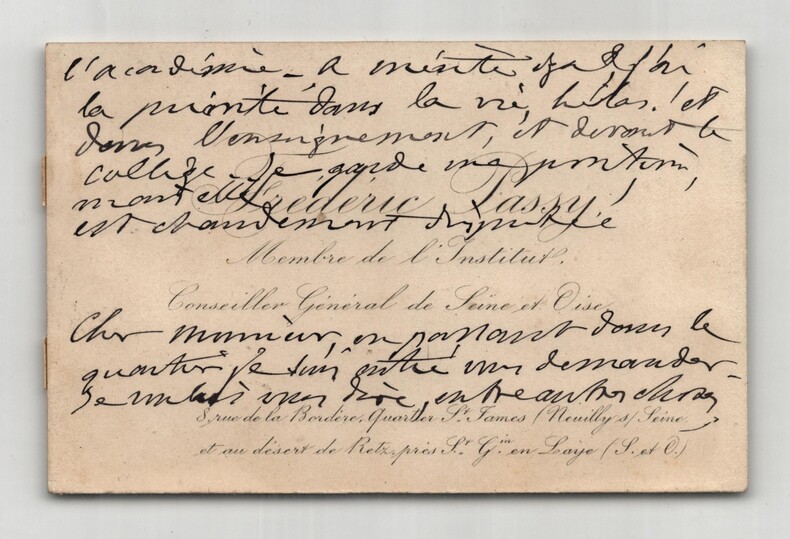 l'académie - a mérite
la priorité dans la vie, hélas! et
dans l'enseignement, et devant le
collège. Je garde ma position,
mais elle
Frédéric Passy
est chaudement disputée
Membre de l'Institut.
Conseiller Général de Seine et Oise
Cher monsieur, en passant dans le
quartier je suis entré vous demander -
Je voulais vous dire, entre autres choses,
8, rue de la Bordère, Quartier St. James (Neuilly s/ Seine
et au désert de Retz, près St. Gin en Laye (S. et O.)